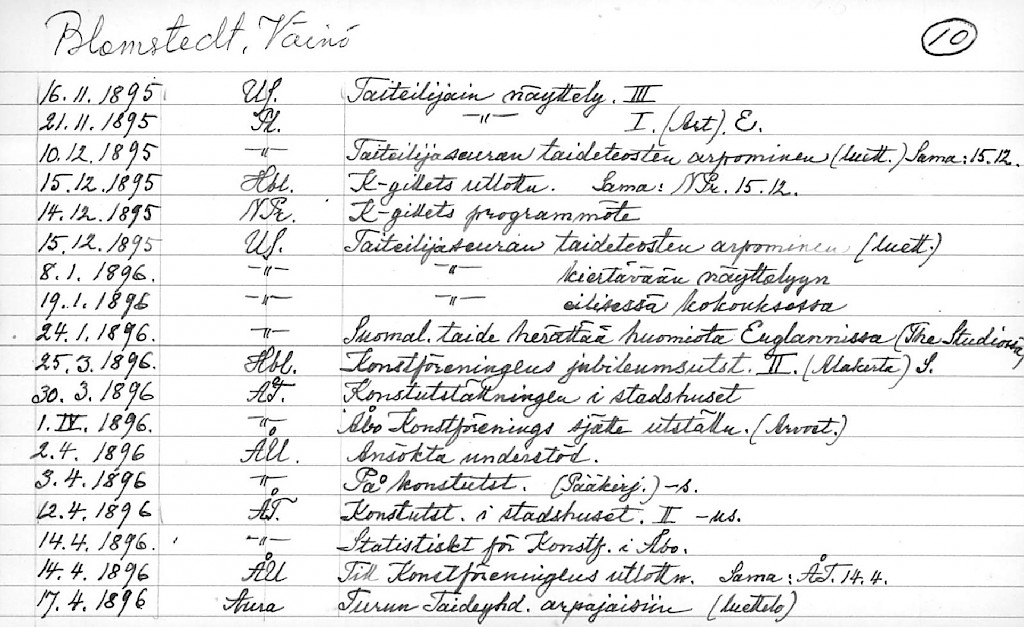 Blomstedt, Väinö 10
16.11.1895 US. Taiteilijain näyttely. III
21.11.1895 Pl. -"- I. (Art). E.
10.12.1895 -"- Taiteilijaseuran taideteosten arpominen (luett.) Sama: 15.12.
15.12.1895 Hbl. K-gillets utlottn. Sama: NPr. 15.12.
14.12.1895 NPr. K-gillets programmöte
15.12.1895 US. Taiteilijaseuran taideteosten arpominen (luett.)
8.1.1896. -"- -"- kiertävään näyttelyyn
19.1.1896 -"- -"- eilisessä kokouksessa
24.1.1896. -"- Suomal. taide herättää huomiota Englannissa (The Studiossa)
25.3.1896. Hbl. Konstföreningens jubileumsutst. II. (Makerta) S.
30.3.1896 ÅT. Konstutställningen i stadshuset
1.IV.1896. -"- Åbo Konstförenings sjätte utställn. (Arvost.)
2.4.1896 ÅU. Ansökta understöd.
3.4.1896 -"- På konstutst. (Pääkirj.) -s.
12.4.1896 ÅT. Konstutst. i stadshuset. II -us.
14.4.1896. -"- Statistiskt för Konstf. i Åbo.
14.4.1896 ÅU Till Konstföreningens utlottn. Sama: ÅT. 14.4.
17.4.1896 Aura Turun Taideyhd. arpajaisiin (luettelo)